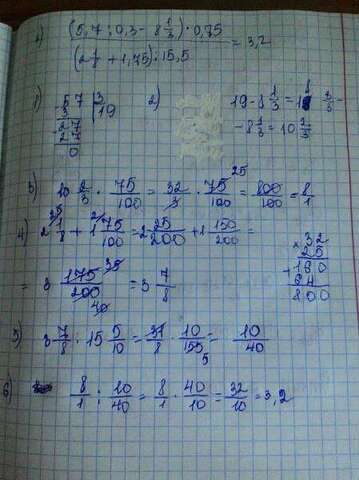 (5,7 : 0,3 - 8 1/3) · 0,75
(2 1/8 + 1,75) : 15,5
= 3,2
1) 57 | 3
3 19
27
27
0
2) 19 - 8 1/3 = 18 3/3 -
- 8 1/3 = 10 2/3
3) 10 2/3 · 75/100 = 32/3 · 75/100 = 800/100 = 8/1
25
4) 2 1/8 + 1 75/100 = 2 25/200 + 1 150/200 =
25 2
= 3 175/200 = 3 7/8
35
40
× 32
25
+ 160
64
800
5) 3 7/8 : 15 5/10 = 31/8 · 10/155 = 10/40
5
6) 8/1 : 10/40 = 8/1 · 40/10 = 32/10 = 3,2